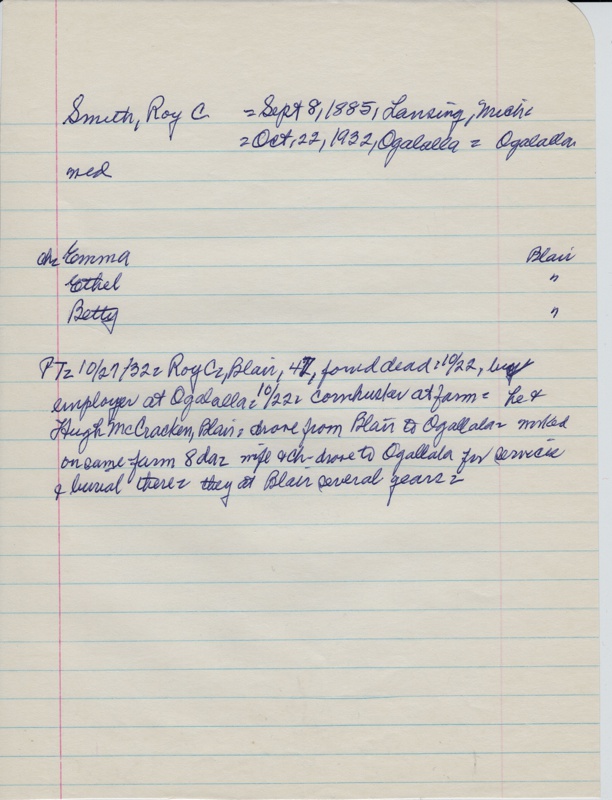 Smith, Roy C = Sept 8, 1885, Lansing, Mich =
= Oct, 22, 1932, Ogalalla = Ogalalla
med
ch = Emma Blair
Ethel "
Betty "
PT = 10/27/32 = Roy C =, Blair, 47, found dead = 10/22, by
employer at Ogalalla = 10/22 = cornhusker at farm = he &
Hugh McCracken, Blair = drove from Blair to Ogallala = worked
on same farm 8 da = wife & ch - drove to Ogallala for services
& burial there = they at Blair several years =